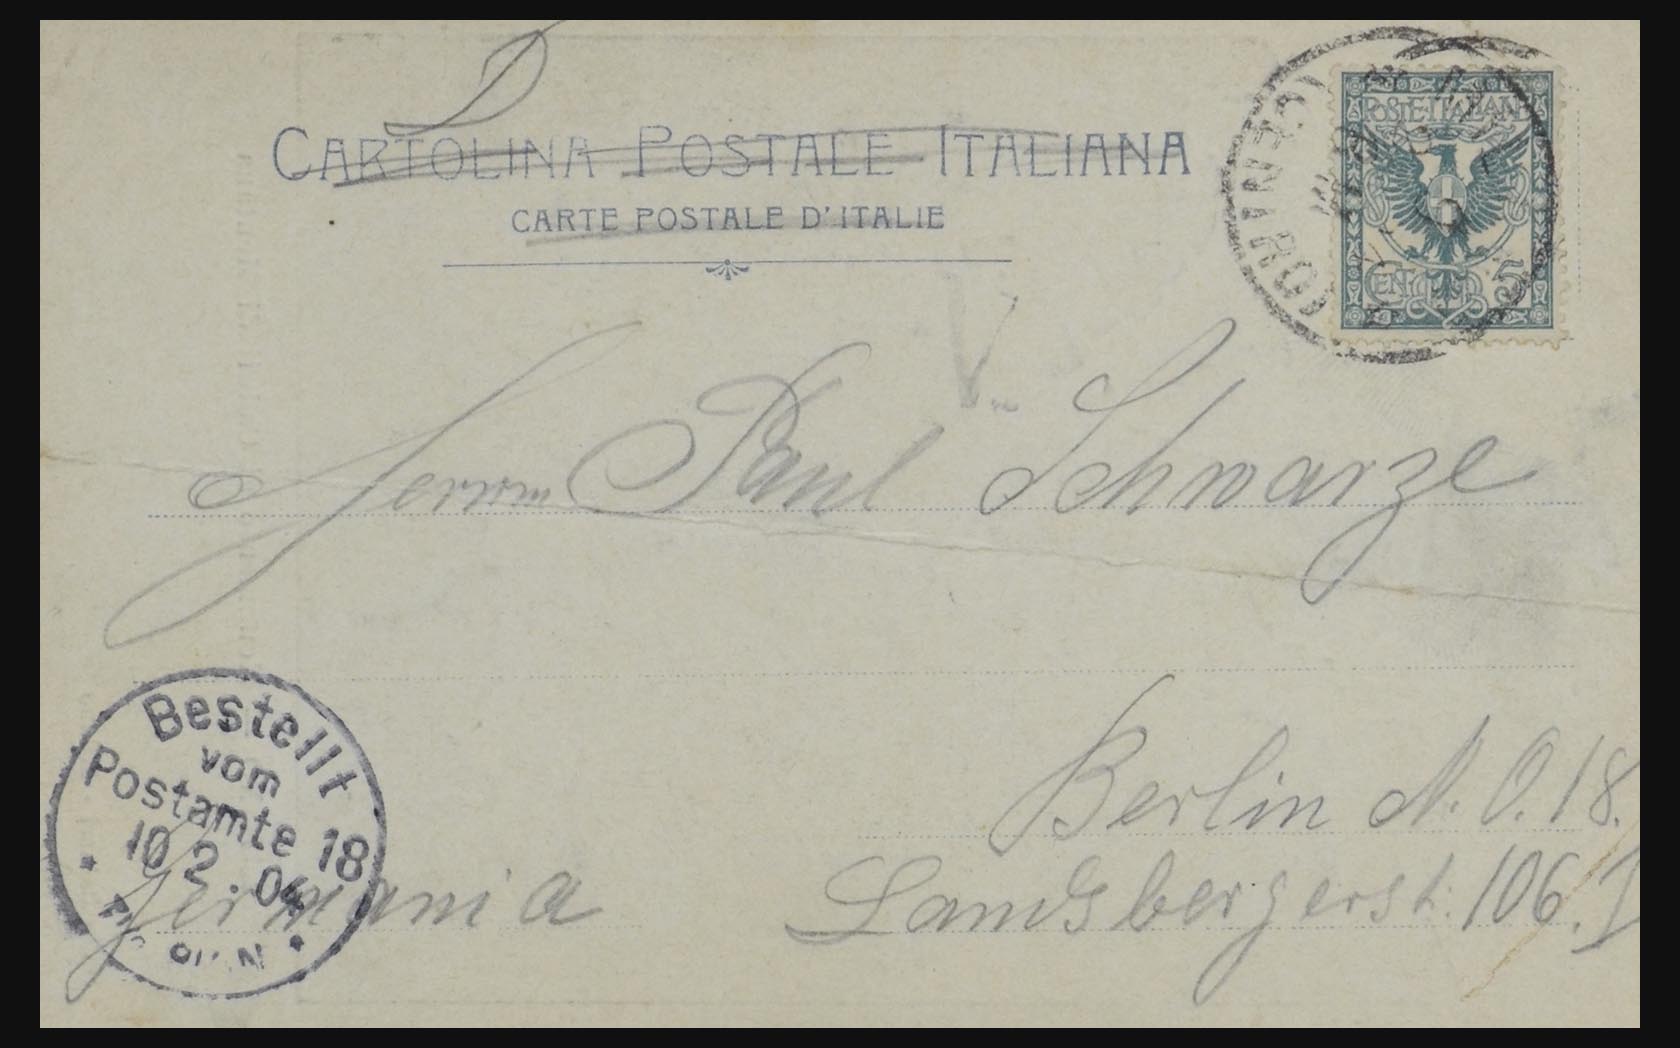 D
CARTOLINA POSTALE ITALIANA
CARTE POSTALE D'ITALIE
POSTE ITALIANE
CENT 5
(CENTRO)
Herrn Paul Schwarze
Berlin N. O. 18.
Landsbergerst. 106. I
Germania
Bestellt
vom
Postamte 18
10 2. 04